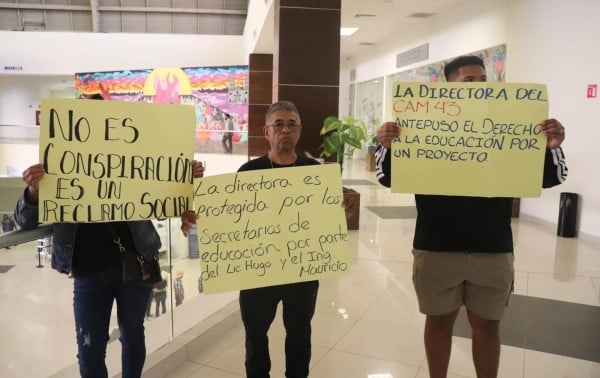 NO ES
CONSPIRACIÓN
ES UN
RECLAMO SOCIAL
La directora es
protegida por los
Secretarios de
educación por parte
del Lic Hugo y el Ing
Mauricio
LA DIRECTORA DEL
CAM 43
ANTEPUSO EL DERECHO
A LA EDUCACIÓN POR
UN PROYECTO